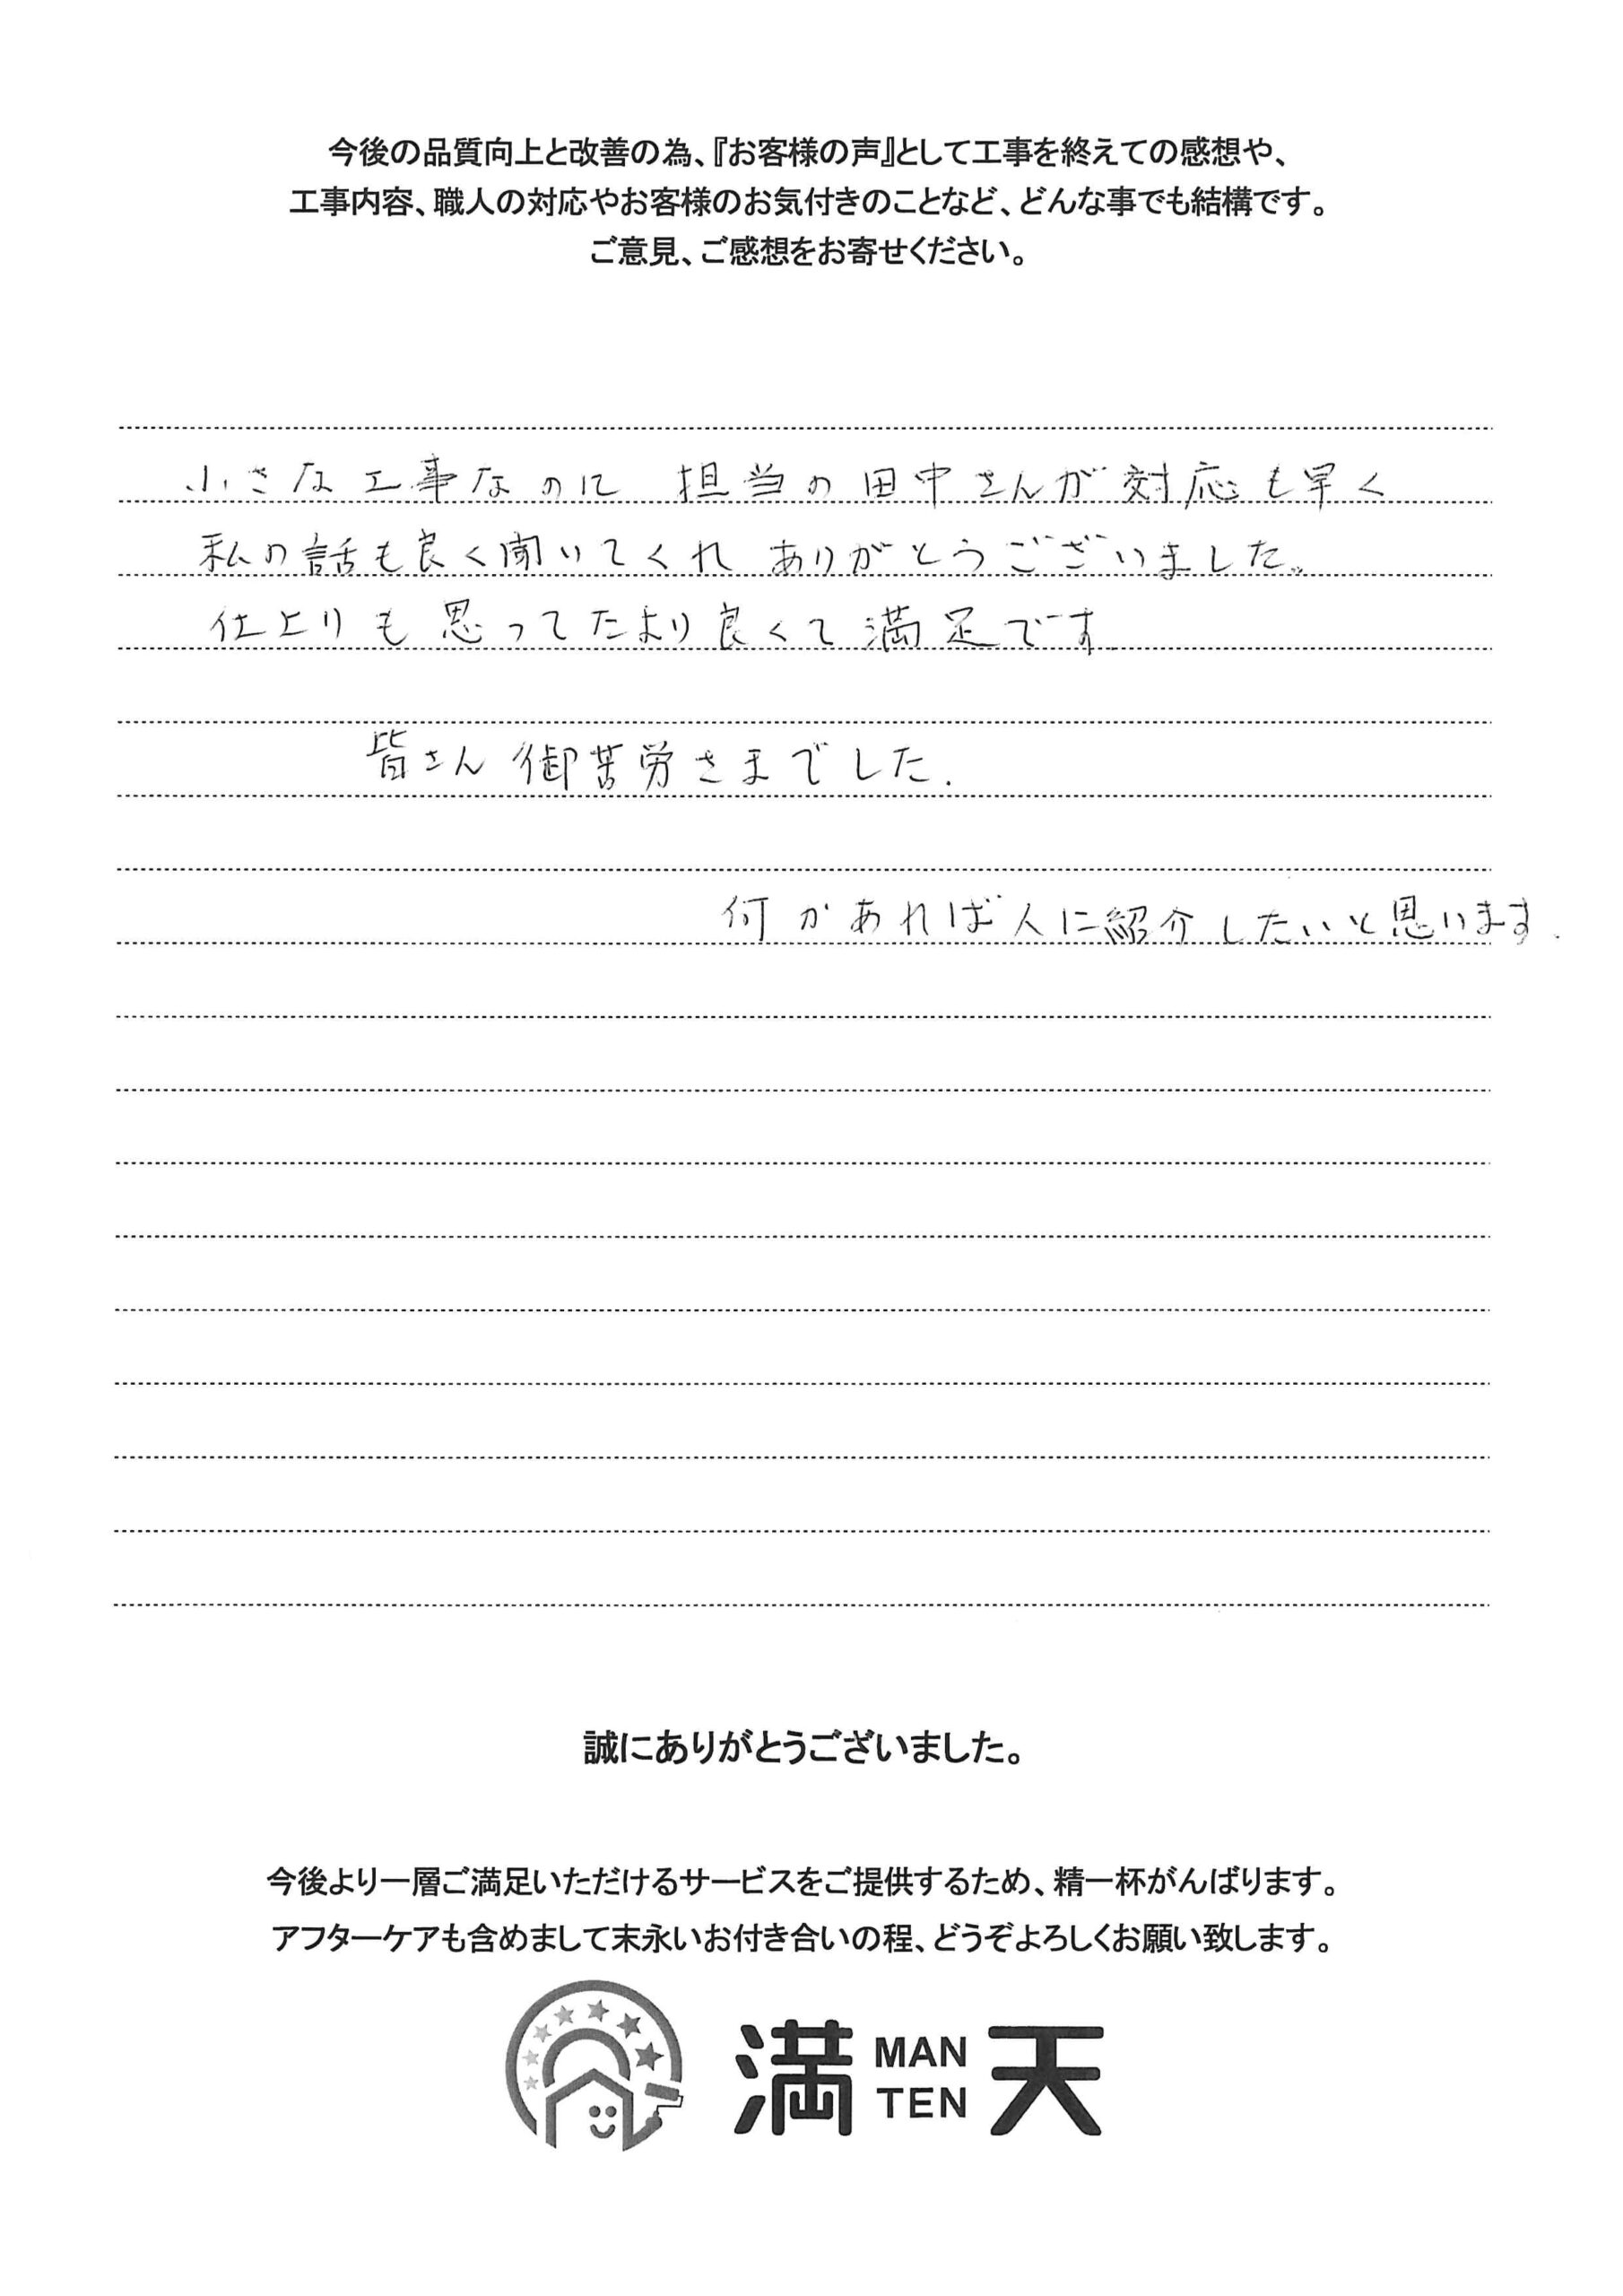 今後の品質向上と改善の為、『お客様の声』として工事を終えての感想や、
工事内容、職人の対応やお客様のお気付きのことなど、どんな事でも結構です。
ご意見、ご感想をお寄せください。
小さな工事なのに 担当の田中さんが対応も早く
私の話も良く聞いてくれ ありがとうございました。
仕上りも思ってたより良くて満足です.
皆さん御苦労さまでした.
何かあれば人に紹介したいと思います.
誠にありがとうございました。
今後より一層ご満足いただけるサービスをご提供するため、精一杯がんばります。
アフターケアも含めまして末永いお付き合いの程、どうぞよろしくお願い致します。
満 MAN TEN 天